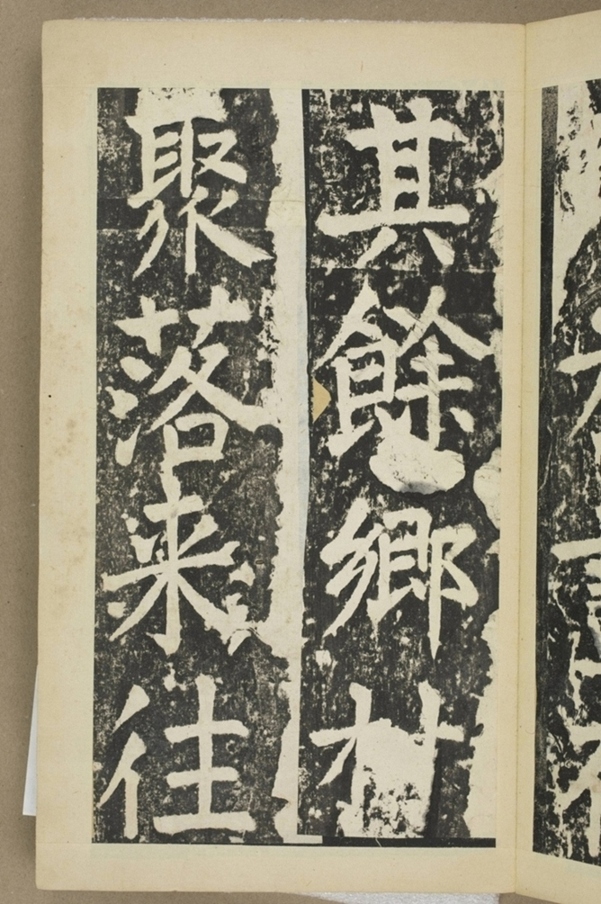 其餘鄉村
聚落来往